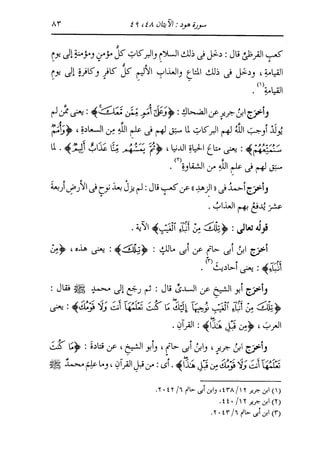 سورة هود : الآيتان ٤٨، ٤٩
٨٣
كعبٍ القرظىِّ قال : دخَل فى ذلك السلامِ والبركاتِ كلُّ مؤمنٍ ومؤمنةٍ إلى يومِ
القيامةِ ، ودخل فى ذلك المتاعِ والعذابِ الأليمِ كلُّ كافرٍ وكافرةٍ إلى يومِ
القيامةِ(١).
وأخرَج ابنُ جريرٍ عن الضحاكِ : ﴿وَعَلَىٰٓ أُمَمٍ مِّمَّن مَّعَكَ﴾ : يعنى ممن لم
يُولَدْ أوجَب اللَّهُ لهم البركاتِ لما سبَق لهم فى علمِ اللَّهِ من السعادةِ ، ﴿وَأُمَمٌ
سَنُمَتِّعُهُمْ﴾ : يعنى متاعَ الحياةِ الدنيا ، ﴿ثُمَّ يَمَسُّهُم مِّنَّا عَذَابٌ أَلِيمٌ﴾ . لما
سبَق لهم فى علمِ اللَّهِ من الشقاوةِ(٢).
وأخرَج أحمدُ فى « الزهدِ » عن كعبٍ قال : لم يزَلْ بعدَ نوحٍ فى الأرضِ أربعةَ
عشَرَ يُدفَعُ بهم العذابُ .
قولُه تعالى : ﴿تِلْكَ مِنْ أَنۢبَآءِ ٱلْغَيْبِ﴾ الآية .
أخرَج ابنُ أبى حاتمٍ عن أبى مالكٍ : ﴿تِلْكَ﴾ : يعنى هذه ، ﴿مِنْ
أَنۢبَآءِ﴾ : يعنى أحاديثَ(٣).
وأخرَج أبو الشيخِ عن السدىِّ قال : ثم رجَع إلى محمدٍ ﷺ فقال :
﴿تِلْكَ مِنْ أَنۢبَآءِ ٱلْغَيْبِ نُوحِيهَآ إِلَيْكَ مَا كُنتَ تَعْلَمُهَآ أَنتَ وَلَا قَوْمُكَ﴾ : يعنى
العربَ ، ﴿مِن قَبْلِ هَٰذَا﴾ : القرآنِ .
وأخرَج ابنُ جريرٍ ، وابنُ أبى حاتمٍ ، وأبو الشيخِ ، عن قتادةَ : ﴿مَا كُنتَ
تَعْلَمُهَآ أَنتَ وَلَا قَوْمُكَ مِن قَبْلِ هَٰذَا﴾ . أى : من قبلِ القرآنِ ، وما علِم محمدٌ ﷺ
(١) ابن جرير ١٢/ ٤٣٨، وابن أبى حاتم ٦/ ٢٠٤٢.
(٢) ابن جرير ١٢/ ٤٤٠.
(٣) ابن أبى حاتم ٦/ ٢٠٤٣.